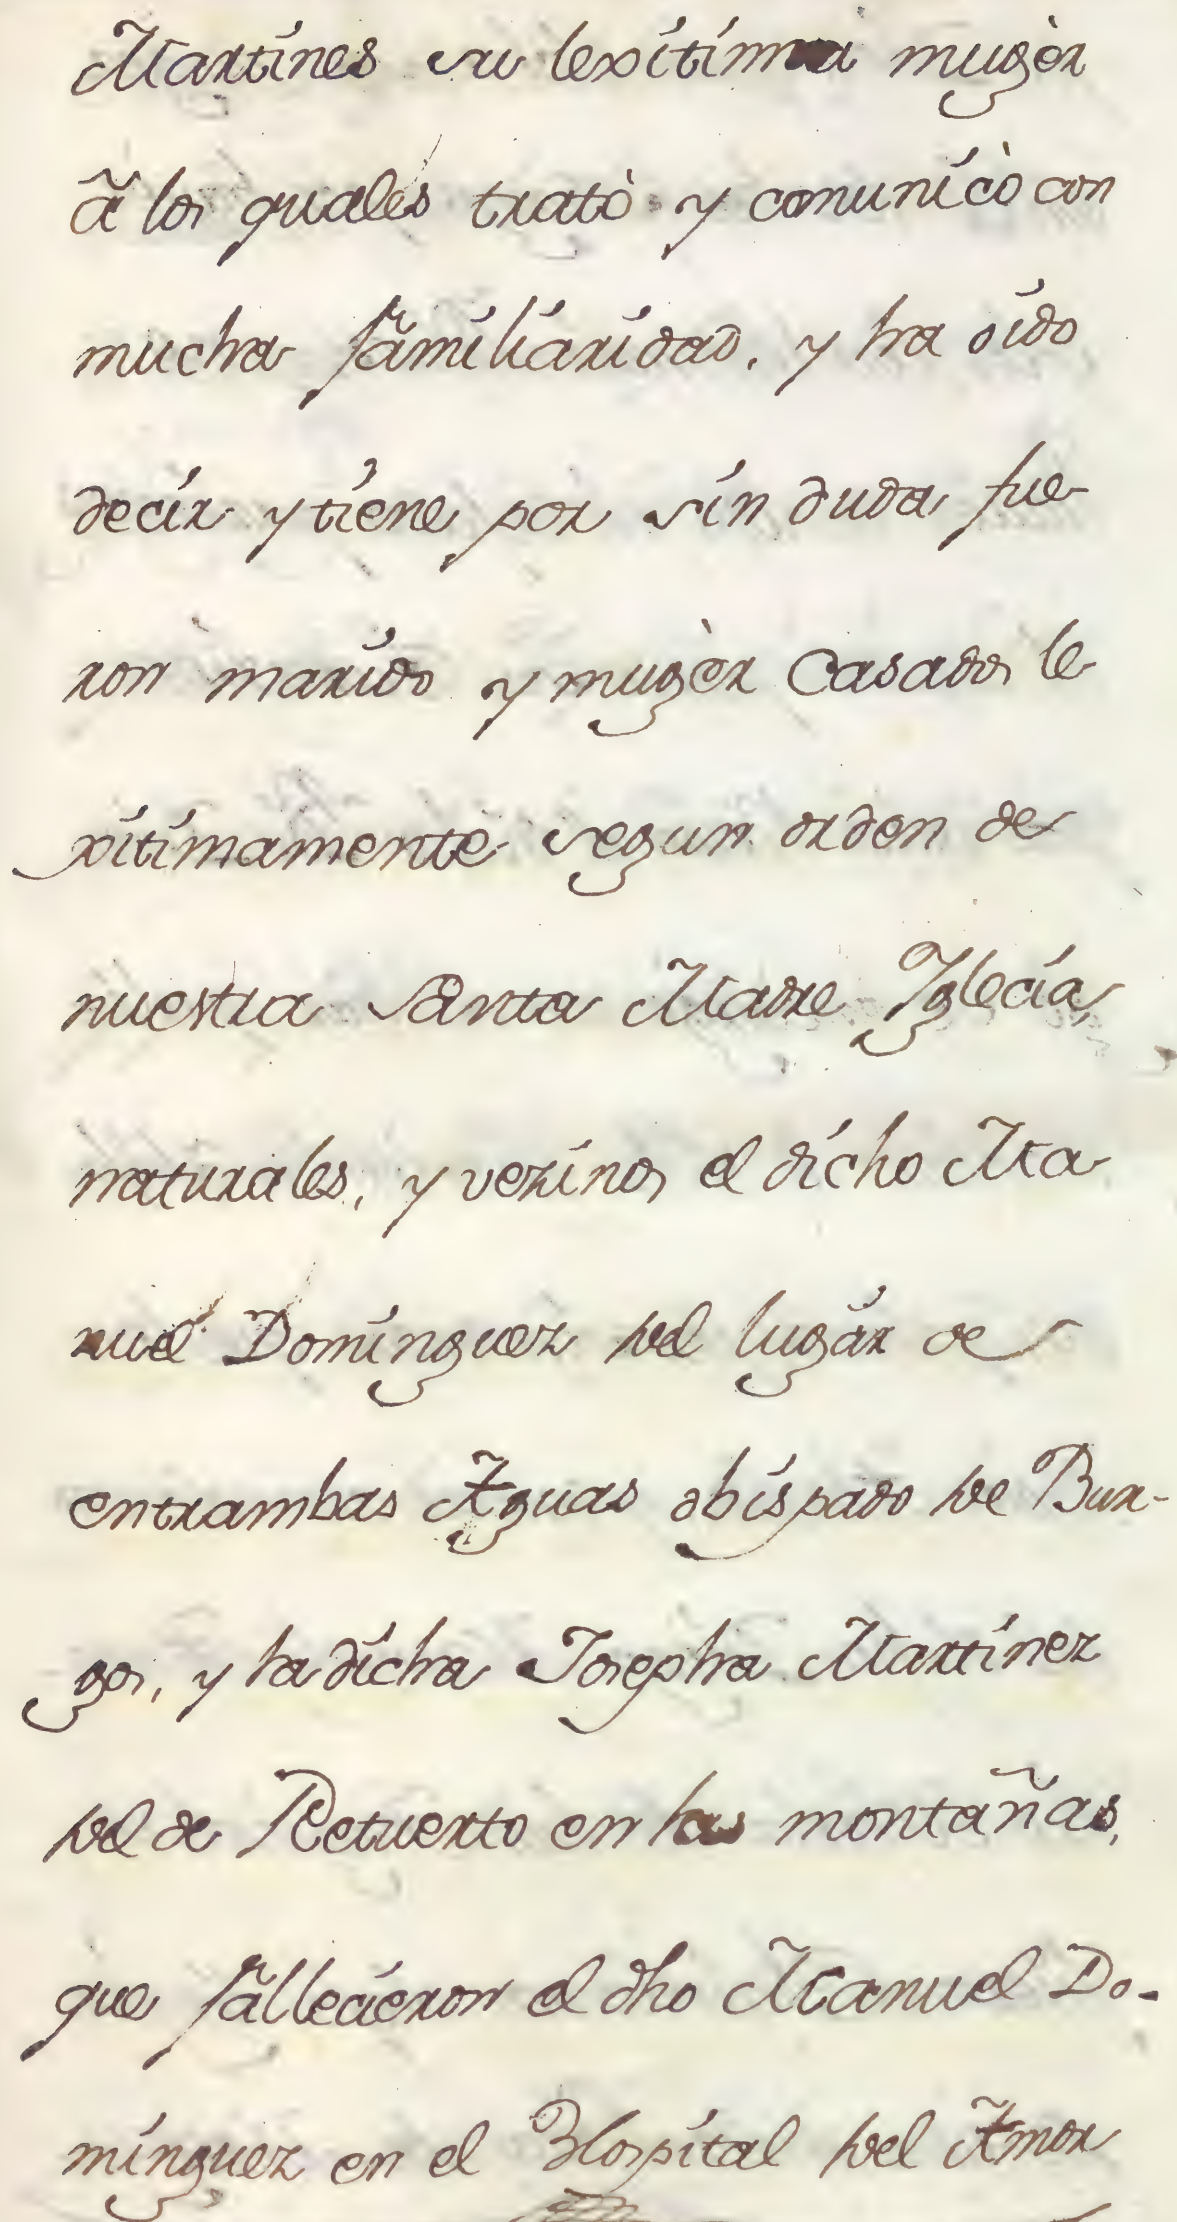 Martines su lexitima mugèr
â los quales tratò y comunicò con
mucha familiaridad, y ha oido
decir y tiene por sin duda fue
ron marido y mugèr Casados le
xitimamente segun orden de
nuestra Santa Madre Yglecia,
naturales, y vezinos el dicho Ma
nuel Dominguez del lugàr de
entrambas Aguas obispado de Bur-
gos, y la dicha Josepha Martinez
del de Retuerto en las montañas,
que fallecieron el dho Manuel Do-
minguez en el Hospital del Amor